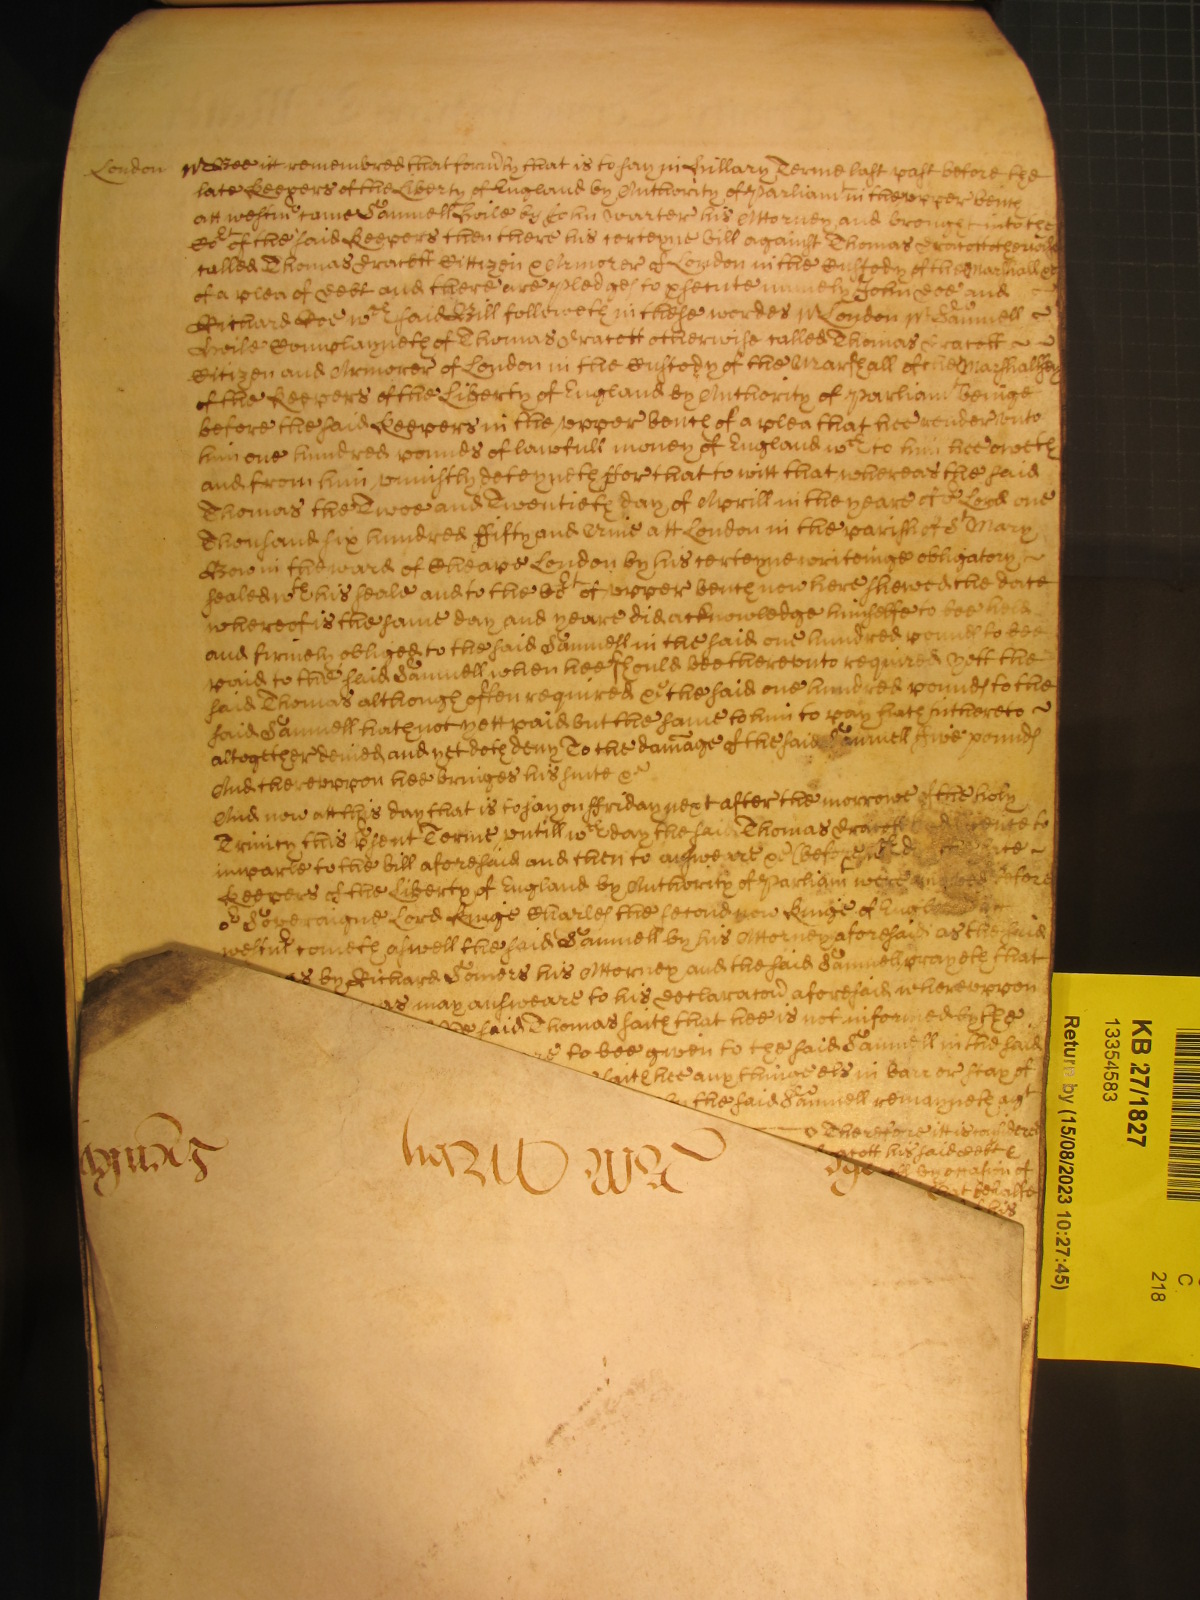 London Bee itt remembred that formly that is to say in Hillary Terme last past before the
late Keepers of the Liberty of England by Authority of Parliamt in the upper bench
att westmr came Samuell Boile by John Warter his Attorney and brought into the
Cort of the said Keepers then there his certeyne bill against Thomas Dracott otherwise
called Thomas Dracott Cittizen & Armorer of London in the Custody of the Marshall &c
of a plea of debt and there are pledges to psecute namely John Doe and
Richard Roe wch said Bill followeth in these wordes London Samuell
Boile Complayneth of Thomas Dracott otherwise called Thomas Dracott
Citizen and Armorer of London in the Custody of the Marshall of the Marshallsey
of the Keepers of the Liberty of England by Authority of Parliamt beinge
before the said Keepers in the upper bench of a plea that hee render unto
him one hundred pounds of lawfull money of England wch to him hee oweth
and from him uniustly deteyneth ffor that to witt that whereas the said
Thomas the Twoe and Twentieth day of Aprill in the yeare of or Lord one
Thousand six hundred ffifty and Nine att London in the parish of St Mary
Bow in the ward of Cheape London by his certeyne writeinge obligatory
sealed wth his seale and to the Cort of upper bench now here shewed the date
whereof is the same day and yeare did acknowledge himselfe to bee held
and firmely obliged to the said Samuell in the said one hundred pounds to bee
paid to the said Samuell when hee should bee thereunto required yett the
said Thomas although often required &c the said one hundred pounds to the
said Samuell hath not yett paid but the same to him to pay hath hithereto
altogether denied and yet doth deny To the damage of the said Samuell five pounds
And thereuppon hee bringes his suite &c
And now att this day that is to say on ffriday next after the morrowe of the holy
Trinity this psent Terme untill wch day the said Thomas Dracott to
imparle to the bill aforesaid and then to answeare &c before
Keepers of the Liberty of England by Authority of Parliamt were before
or Soveraigne Lord Kinge Charles the second now Kinge of
westmr cometh aswell the said Samuell by his Attorney aforesaid as the said
as by Richard Somers his Attorney and the said Samuell prayeth that
as may answeare to his declaracon aforesaid whereuppon
the said Thomas saith that hee is not informed by the
to bee given to the said Samuell in the said
saith hee any thinge els in barr or stay of
the said Samuell remayneth agt
Therefore itt is considered
Dracott his said debt &
by occasion of
that behalfe
his
KB 27/1827
13354583
Return by (15/08/2023 10:27:45)
C
218